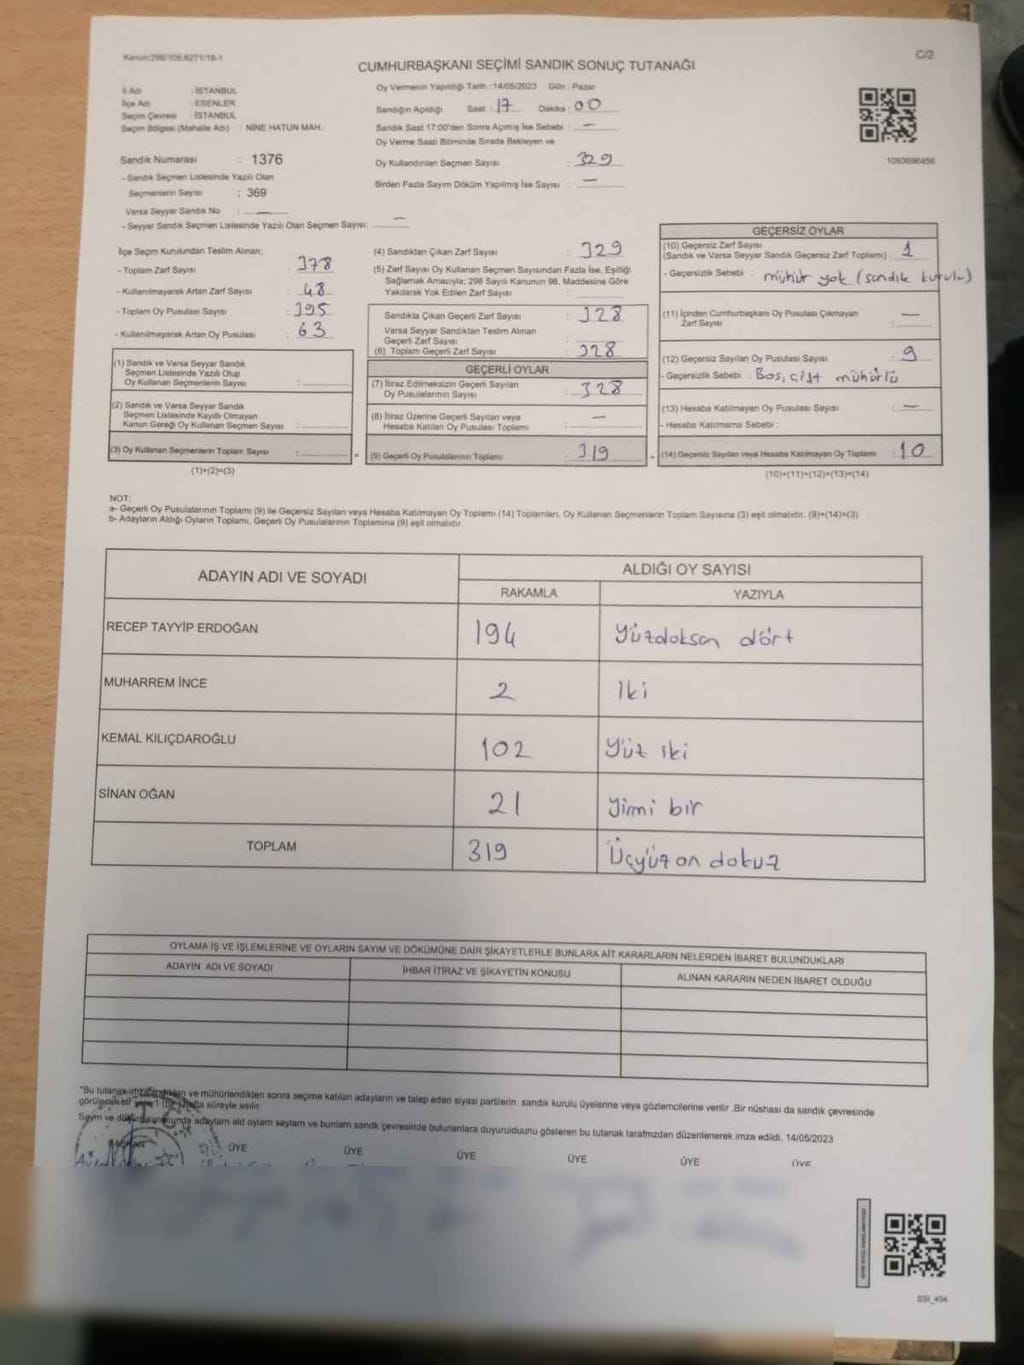 Kanun:298/105;6271/18-1
C/2
CUMHURBAŞKANI SEÇİMİ SANDIK SONUÇ TUTANAĞI
İl Adı : İSTANBUL
İlçe Adı : ESENLER
Seçim Çevresi : İSTANBUL
Seçim Bölgesi (Mahalle Adı) : NİNE HATUN MAH.
Sandık Numarası : 1376
- Sandık Seçmen Listesinde Yazılı Olan
Seçmenlerin Sayısı : 369
Varsa Seyyar Sandık No : —
- Seyyar Sandık Seçmen Listesinde Yazılı Olan Seçmen Sayısı: —
Oy Vermenin Yapıldığı Tarih :14/05/2023 Gün : Pazar
Sandığın Açıldığı Saat : 17 Dakika : 00
Sandık Saat 17:00'den Sonra Açılmış İse Sebebi : —
Oy Verme Saati Bitiminde Sırada Bekleyen ve
Oy Kullandırılan Seçmen Sayısı : 329
Birden Fazla Sayım Döküm Yapılmış İse Sayısı : —
1093696458
İlçe Seçim Kurulundan Teslim Alınan;
- Toplam Zarf Sayısı : 378
- Kullanılmayarak Artan Zarf Sayısı : 48
- Toplam Oy Pusulası Sayısı : 395
- Kullanılmayarak Artan Oy Pusulası : 63
(1) Sandık ve Varsa Seyyar Sandık
Seçmen Listesinde Yazılı Olup
Oy Kullanan Seçmenlerin Sayısı :
(2) Sandık ve Varsa Seyyar Sandık
Seçmen Listesinde Kayıtlı Olmayan
Kanun Gereği Oy Kullanan Seçmen Sayısı :
(3) Oy Kullanan Seçmenlerin Toplam Sayısı :
(1)+(2)=(3)
(4) Sandıktan Çıkan Zarf Sayısı : 329
(5) Zarf Sayısı Oy Kullanan Seçmen Sayısından Fazla İse, Eşitliği
Sağlamak Amacıyla; 298 Sayılı Kanunun 98. Maddesine Göre
Yakılarak Yok Edilen Zarf Sayısı :
Sandıkta Çıkan Geçerli Zarf Sayısı : 328
Varsa Seyyar Sandıktan Teslim Alınan
Geçerli Zarf Sayısı :
(6) Toplam Geçerli Zarf Sayısı : 328
GEÇERLİ OYLAR
(7) İtiraz Edilmeksizin Geçerli Sayılan
Oy Pusulalarının Sayısı : 328
(8) İtiraz Üzerine Geçerli Sayılan veya
Hesaba Katılan Oy Pusulası Toplamı : —
(9) Geçerli Oy Pusulalarının Toplamı : 319
GEÇERSİZ OYLAR
(10) Geçersiz Zarf Sayısı
(Sandık ve Varsa Seyyar Sandık Geçersiz Zarf Toplamı) : 1
- Geçersizlik Sebebi : mühür yok (sandık kurulu)
(11) İçinden Cumhurbaşkanı Oy Pusulası Çıkmayan
Zarf Sayısı : —
(12) Geçersiz Sayılan Oy Pusulası Sayısı : 9
- Geçersizlik Sebebi : Boş, çift mühürlü
(13) Hesaba Katılmayan Oy Pusulası Sayısı : —
- Hesaba Katılmama Sebebi :
(14) Geçersiz Sayılan veya Hesaba Katılmayan Oy Toplamı : 10
(10)+(11)+(12)+(13)=(14)
NOT:
a- Geçerli Oy Pusulalarının Toplamı (9) ile Geçersiz Sayılan veya Hesaba Katılmayan Oy Toplamı (14) Toplamları, Oy Kullanan Seçmenlerin Toplam Sayısına (3) eşit olmalıdır. (9)+(14)=(3)
b- Adayların Aldığı Oyların Toplamı, Geçerli Oy Pusulalarının Toplamına (9) eşit olmalıdır.
ADAYIN ADI VE SOYADI
ALDIĞI OY SAYISI
RAKAMLA YAZIYLA
RECEP TAYYİP ERDOĞAN 194 Yüzdoksan dört
MUHARREM İNCE 2 İki
KEMAL KILIÇDAROĞLU 102 Yüz iki
SİNAN OĞAN 21 Yirmi bir
TOPLAM 319 Üçyüz on dokuz
OYLAMA İŞ VE İŞLEMLERİNE VE OYLARIN SAYIM VE DÖKÜMÜNE DAİR ŞİKAYETLERLE BUNLARA AİT KARARLARIN NELERDEN İBARET BULUNDUKLARI
ADAYIN ADI VE SOYADI İHBAR İTİRAZ VE ŞİKAYETİN KONUSU ALINAN KARARIN NEDEN İBARET OLDUĞU
*Bu tutanak imzalandıktan ve mühürlendikten sonra seçime katılan adayların ve talep eden siyasi partilerin sandık kurulu üyelerine veya gözlemcilerine verilir. Bir nüshası da sandık çevresinde
görülecek bir yere 1 (bir) hafta süreyle asılır.
Sayım ve dökümü sonucunda adayların ald oyların sayılam ve bunların sandk çevresinde bulunanlara duyurulduunu gösteren bu tutanak tarafmzdan düzenlenerek imza edildi. 14/05/2023
BAŞKAN ÜYE ÜYE ÜYE ÜYE ÜYE ÜYE
SSI_404